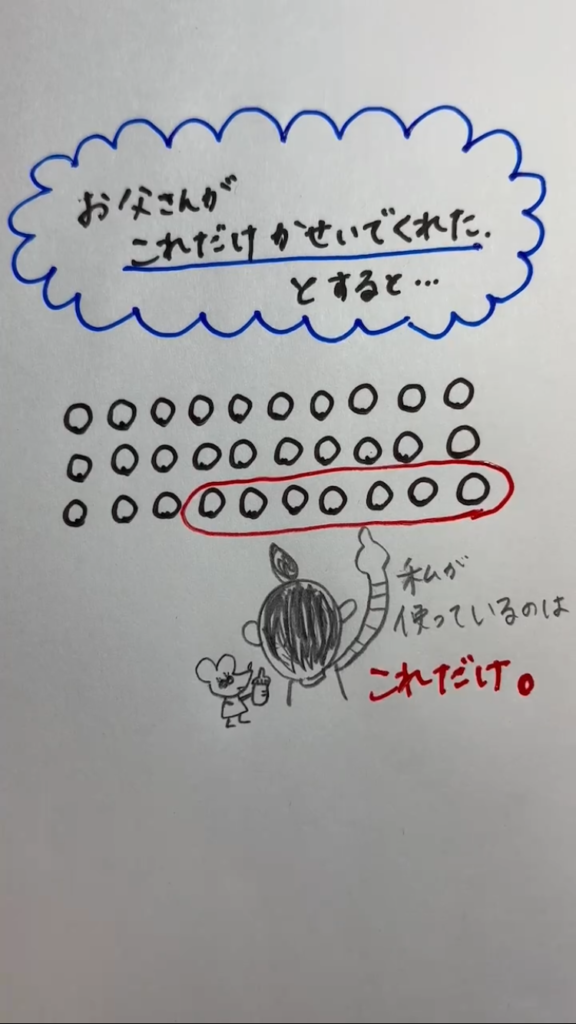 お父さんが
これだけ かせいでくれた.
とすると…
私が
使っているのは
これだけ。